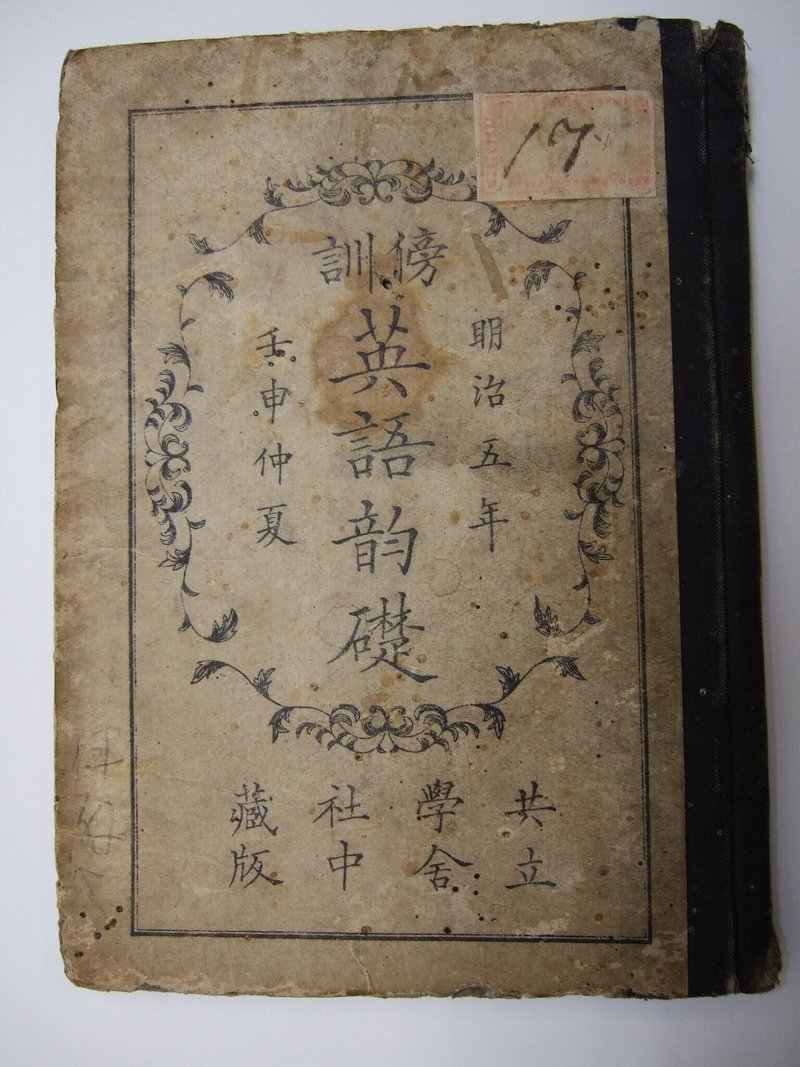 17
傍訓
明治五年
英語韵礎
壬申仲夏
共立
學舍
社中
藏版